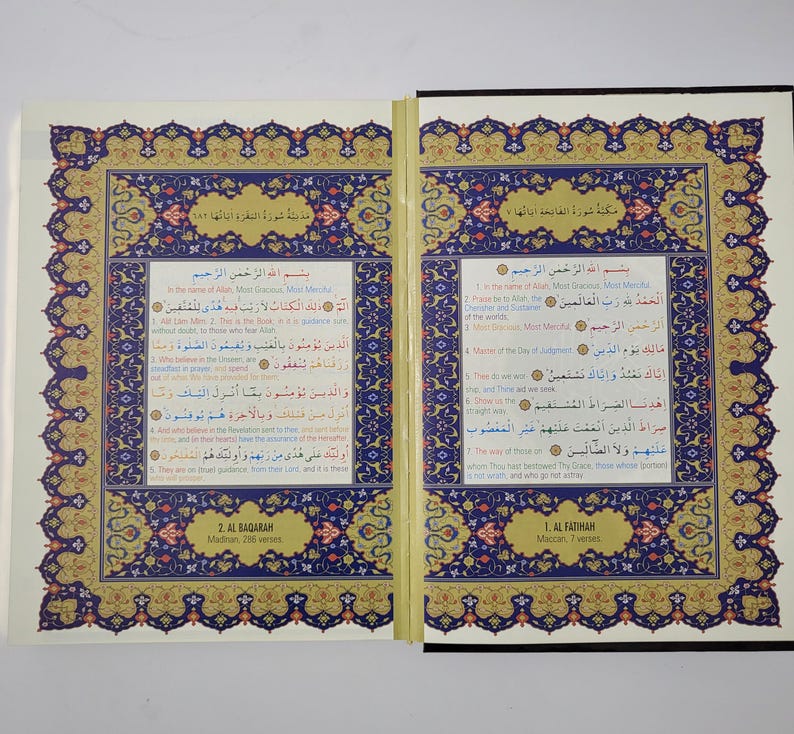 مَكِّيَّةٌ سُورَةُ الفَاتِحَةِ اٰيَاتُهَا ٧
بِسْمِ اللهِ الرَّحْمٰنِ الرَّحِيمِ
1. In the name of Allah, Most Gracious, Most Merciful.
2. Praise be to Allah, the اَلْحَمْدُ لِلهِ رَبِّ الْعَالَمِينَ
Cherisher and Sustainer
of the worlds,
3. Most Gracious, Most Merciful; اَلرَّحْمٰنِ الرَّحِيمِ
4. Master of the Day of Judgment. مَالِكِ يَوْمِ الدِّينِ
5. Thee do we wor- اِيَّاكَ نَعْبُدُ وَاِيَّاكَ نَسْتَعِينُ
ship, and Thine aid we seek.
6. Show us the اِهْدِنَا الصِّرَاطَ الْمُسْتَقِيمَ
straight way,
صِرَاطَ الَّذِينَ اَنْعَمْتَ عَلَيْهِمْ غَيْرِ الْمَغْضُوبِ
7. The way of those on عَلَيْهِمْ وَلَا الضَّالِّينَ
whom Thou hast bestowed Thy Grace, those whose (portion)
is not wrath, and who go not astray.
1. AL FÂTIHAH
Maccan, 7 verses.
مَدَنِيَّةٌ سُورَةُ البَقَرَةِ اٰيَاتُهَا ٦٨٢
بِسْمِ اللهِ الرَّحْمٰنِ الرَّحِيمِ
In the name of Allah, Most Gracious, Most Merciful.
الٓمٓ ذٰلِكَ الْكِتَابُ لَا رَيْبَ فِيهِ هُدًى لِلْمُتَّقِينَ
1. Alif Lâm Mîm. 2. This is the Book; in it is guidance sure,
without doubt, to those who fear Allah.
اَلَّذِينَ يُؤْمِنُونَ بِالْغَيْبِ وَيُقِيمُونَ الصَّلٰوةَ وَمِمَّا
3. Who believe in the Unseen, are رَزَقْنَاهُمْ يُنْفِقُونَ
steadfast in prayer, and spend
out of what We have provided for them;
وَالَّذِينَ يُؤْمِنُونَ بِمَا اُنْزِلَ اِلَيْكَ وَمَا
اُنْزِلَ مِنْ قَبْلِكَ وَبِالْاٰخِرَةِ هُمْ يُوقِنُونَ
4. And who believe in the Revelation sent to thee, and sent before
thy time, and (in their hearts) have the assurance of the Hereafter.
اُولٰئِكَ عَلٰى هُدًى مِنْ رَبِّهِمْ وَاُولٰئِكَ هُمُ الْمُفْلِحُونَ
5. They are on (true) guidance, from their Lord, and it is these
who will prosper.
2. AL BAQARAH
Madînan, 286 verses.